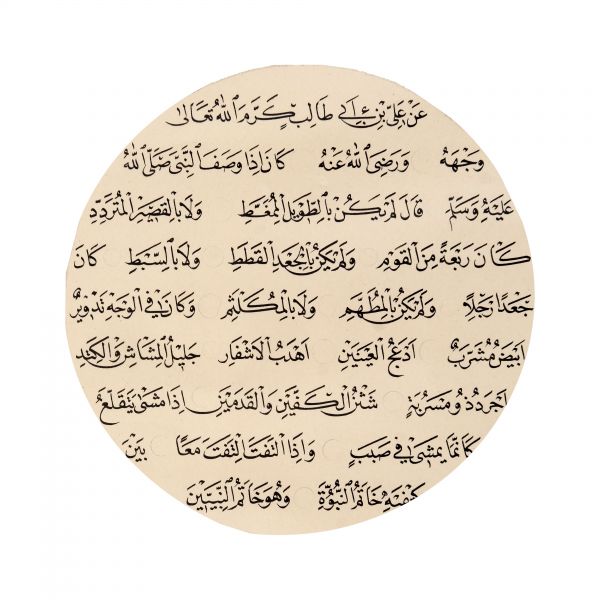 عَنْ عَلِيِّ بْنِ اَبِي طَالِبٍ كَرَّمَ اللّٰهُ تَعَالٰى
وَجْهَهُ وَرَضِيَ اللّٰهُ عَنْهُ كَانَ اِذَا وَصَفَ النَّبِيَّ صَلَّى اللّٰهُ
عَلَيْهِ وَسَلَّمَ قَالَ لَمْ يَكُنْ بِالطَّوِيلِ الْمُمَّغِطِ وَلَا بِالْقَصِيرِ الْمُتَرَدِّدِ
كَانَ رَبْعَةً مِنَ الْقَوْمِ وَلَمْ يَكُنْ بِالْجَعْدِ الْقَطَطِ وَلَا بِالسَّبِطِ كَانَ
جَعْدًا رَجِلًا وَلَمْ يَكُنْ بِالْمُطَهَّمِ وَلَا بِالْمُكَلْثَمِ وَكَانَ فِي الْوَجْهِ تَدْوِيرٌ
اَبْيَضُ مُشْرَبٌ اَدْعَجُ الْعَيْنَيْنِ اَهْدَبُ الْاَشْفَارِ جَلِيلُ الْمُشَاشِ وَالْكَتَدِ
اَجْرَدُ ذُو مَسْرُبَةٍ شَثْنُ الْكَفَّيْنِ وَالْقَدَمَيْنِ اِذَا مَشٰى يَتَقَلَّعُ
كَاَنَّمَا يَمْشِي فِي صَبَبٍ وَاِذَا الْتَفَتَ الْتَفَتَ مَعًا بَيْنَ
كَتِفَيْهِ خَاتَمُ النُّبُوَّةِ وَهُوَ خَاتَمُ النَّبِيِّينَ